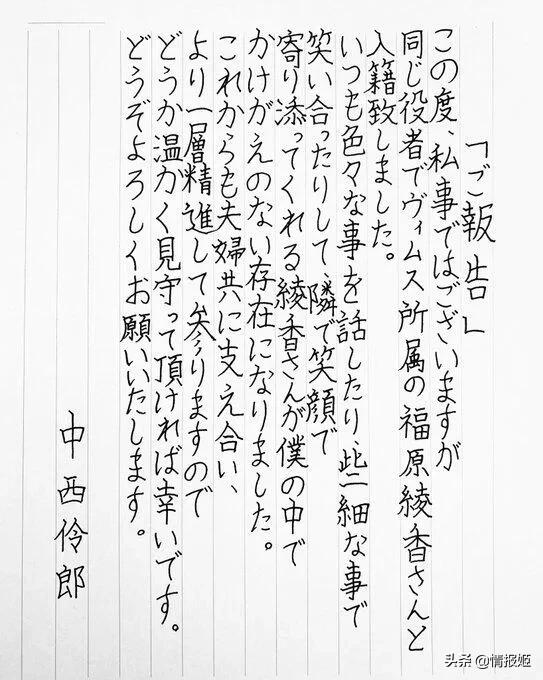 「ご報告」
この度、私事ではございますが
同じ役者でヴィムス所属の福原綾香さんと
入籍致しました。
いつも色々な事を話したり、些細な事で
笑い合ったりして、隣で笑顔で
寄り添ってくれる綾香さんが僕の中で
かけがえのない存在になりました。
これからも夫婦共に支え合い、
より一層精進して参りますので
どうか温かく見守って頂ければ幸いです。
どうぞよろしくお願いいたします。
中西伶郎
头条 @情报姬